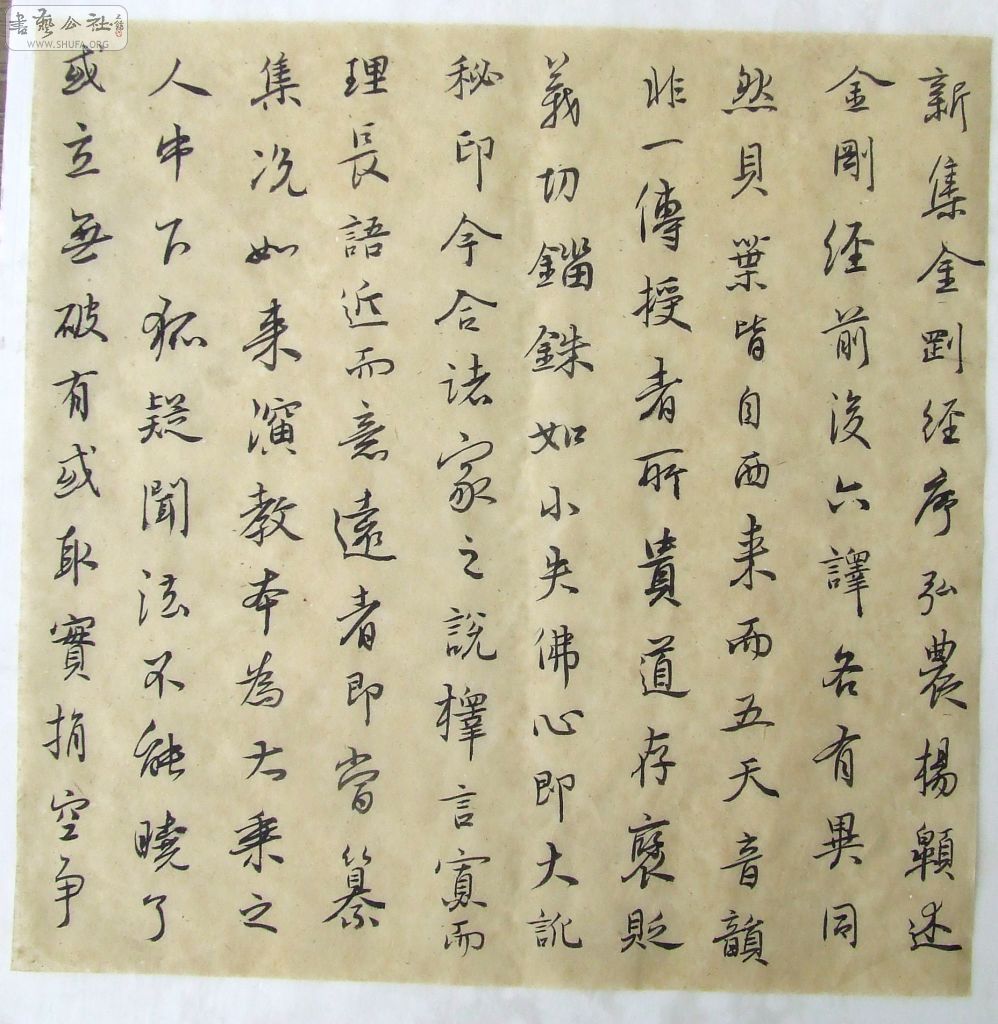 新集金剛經序弘農楊顒述
金剛經前後六譯各有異同
然貝葉皆自西来而五天音韻
非一傳授者所貴道存褒貶
義切錙銖如小失佛心即大訛
秘印今合諸家之說擇言寡而
理長語近而意遠者即當纂
集况如来演教本為大乘之
人中下狐疑聞法不能曉了
或立無破有或取實捐空争
書藝公社
WWW.SHUFA.ORG